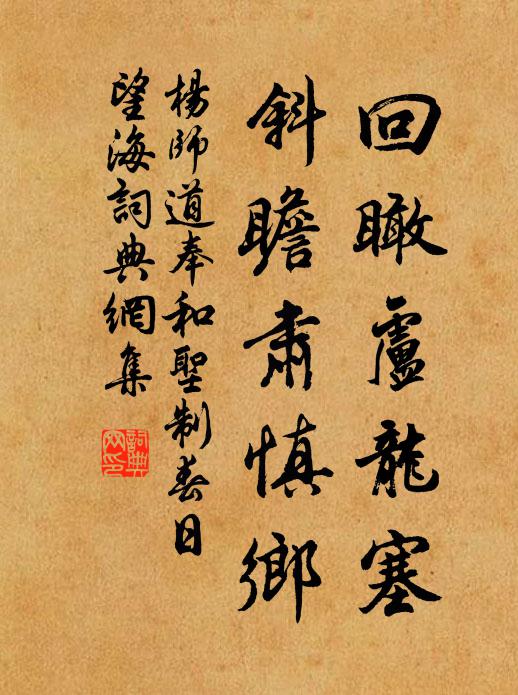 回瞰盧龍塞
斜瞻肅慎鄉
楊師道奉和聖制春日
望海詞典網集
詞典
网印